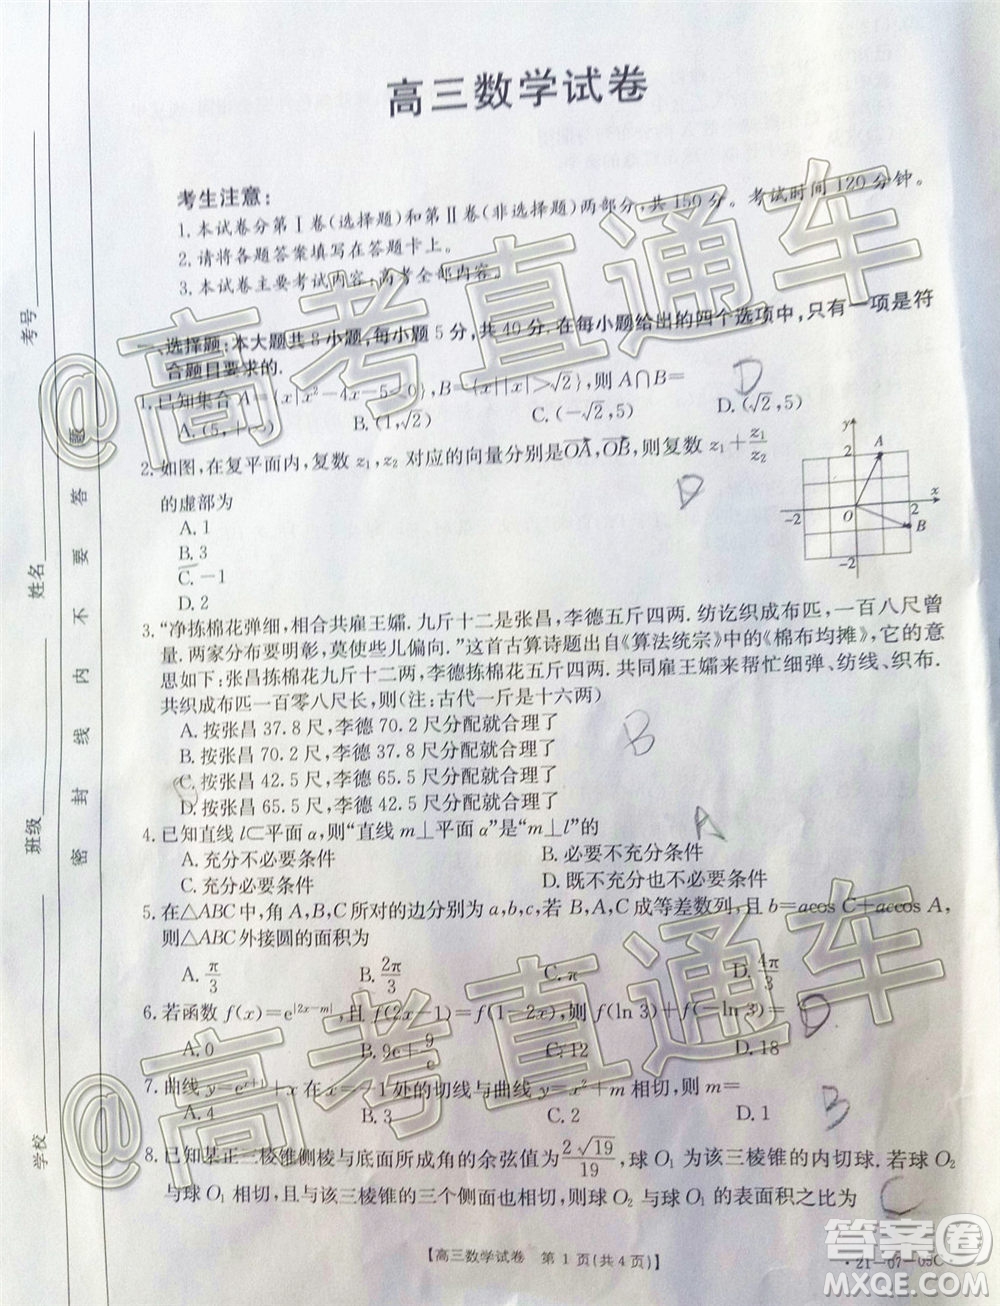 高三数学试卷
考生注意:
1.本试卷分第Ⅰ卷(选择题)和第Ⅱ卷(非选择题)两部分,共150分。考试时间120分钟。
2.请将各题答案填写在答题卡上。
3.本试卷主要考试内容:高考全部内容。
一、选择题:本大题共8小题,每小题5分,共40分.在每小题给出的四个选项中,只有一项是符
合题目要求的.
1.已知集合A={x|x²-4x-5<0},B={x||x|>√2},则A∩B= D
A.(5,+∞) B.(1,√2) C.(-√2,5) D.(√2,5)
2.如图,在复平面内,复数z₁,z₂对应的向量分别是OA,OB,则复数z₁+z₁/z₂
的虚部为 D
A.1
B.3
C.-1
D.2
y 2 A x -2 O 2 B -2
3."净拣棉花弹细,相共雇王孀.九斤十二是张昌,李德五斤四两.纺讫织成布匹,一百八尺曾
量.两家分布要明彰,莫使些儿偏向."这首古算诗题出自《算法统宗》中的《棉布均摊》,它的意
思如下:张昌拣棉花九斤十二两,李德拣棉花五斤四两.共同雇王孀来帮忙细弹、纺线、织布.
共织成布匹一百零八尺长,则(注:古代一斤是十六两)
A.按张昌37.8尺,李德70.2尺分配就合理了
B.按张昌70.2尺,李德37.8尺分配就合理了 B
C.按张昌42.5尺,李德65.5尺分配就合理了
D.按张昌65.5尺,李德42.5尺分配就合理了
4.已知直线l⊂平面α,则"直线m⊥平面α"是"m⊥l"的 A
A.充分不必要条件 B.必要不充分条件
C.充分必要条件 D.既不充分也不必要条件
5.在△ABC中,角A,B,C所对的边分别为a,b,c,若B,A,C成等差数列,且b=acos C+accos A,
则△ABC外接圆的面积为
A.π/3 B.2π/3 C.π D.4π/3
6.若函数f(x)=e^|2x-m|,且f(2x-1)=f(1-2x),则f(ln 3)+f(-ln 3)= D
A.0 B.9e+9/e C.12 D.18
7.曲线y=e^(x+1)+x在x=-1处的切线与曲线y=x²+m相切,则m=
A.4 B.3 C.2 D.1 B
8.已知某正三棱锥侧棱与底面所成角的余弦值为2√19/19,球O₁为该三棱锥的内切球.若球O₂
与球O₁相切,且与该三棱锥的三个侧面也相切,则球O₂与球O₁的表面积之比为 C
【高三数学试卷 第1页(共4页)】
·21-07-05C·
考号
姓名
班级
学校
密封线内不要答题
@高考直通车
@高考直通车
答案圈
MXQE.COM